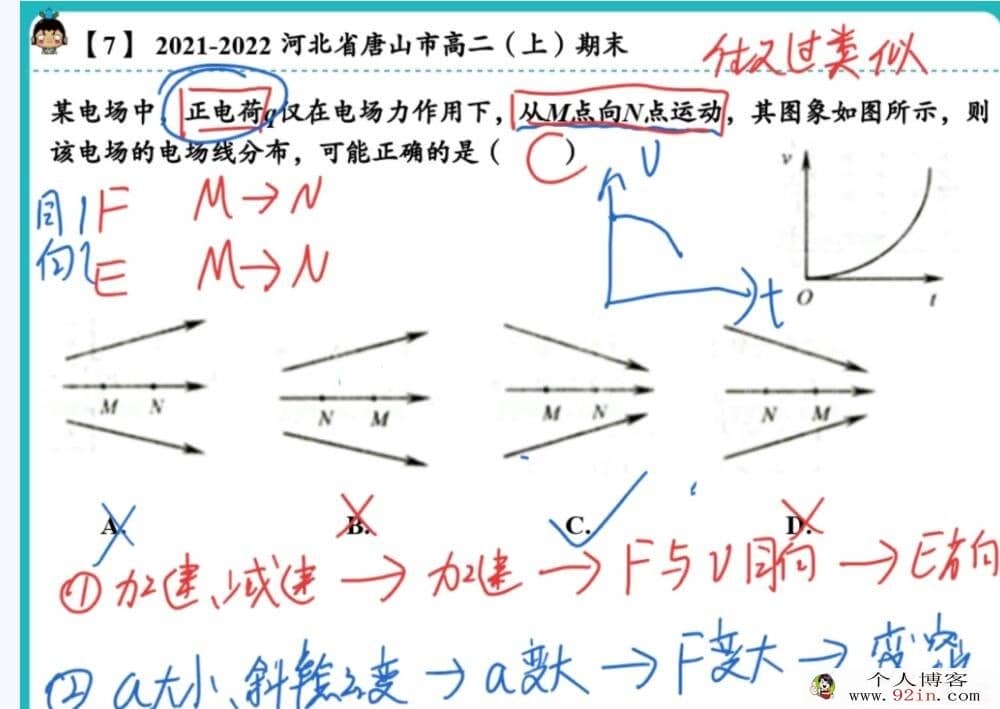 【7】 2021-2022 河北省唐山市高二（上）期末
做过类似
某电场中，正电荷q仅在电场力作用下，从M点向N点运动，其图象如图所示，则
该电场的电场线分布，可能正确的是（ C ）
同 F M→N
向 E M→N
v
t
v
O
t
M N
N M
M N
N M
A.
B.
C.
D.
① 加速、减速 → 加速 → F与V同向 → E方向
② a大小、斜率怎么变 → a变大 → F变大 → 变密
个人博客
www.92in.com